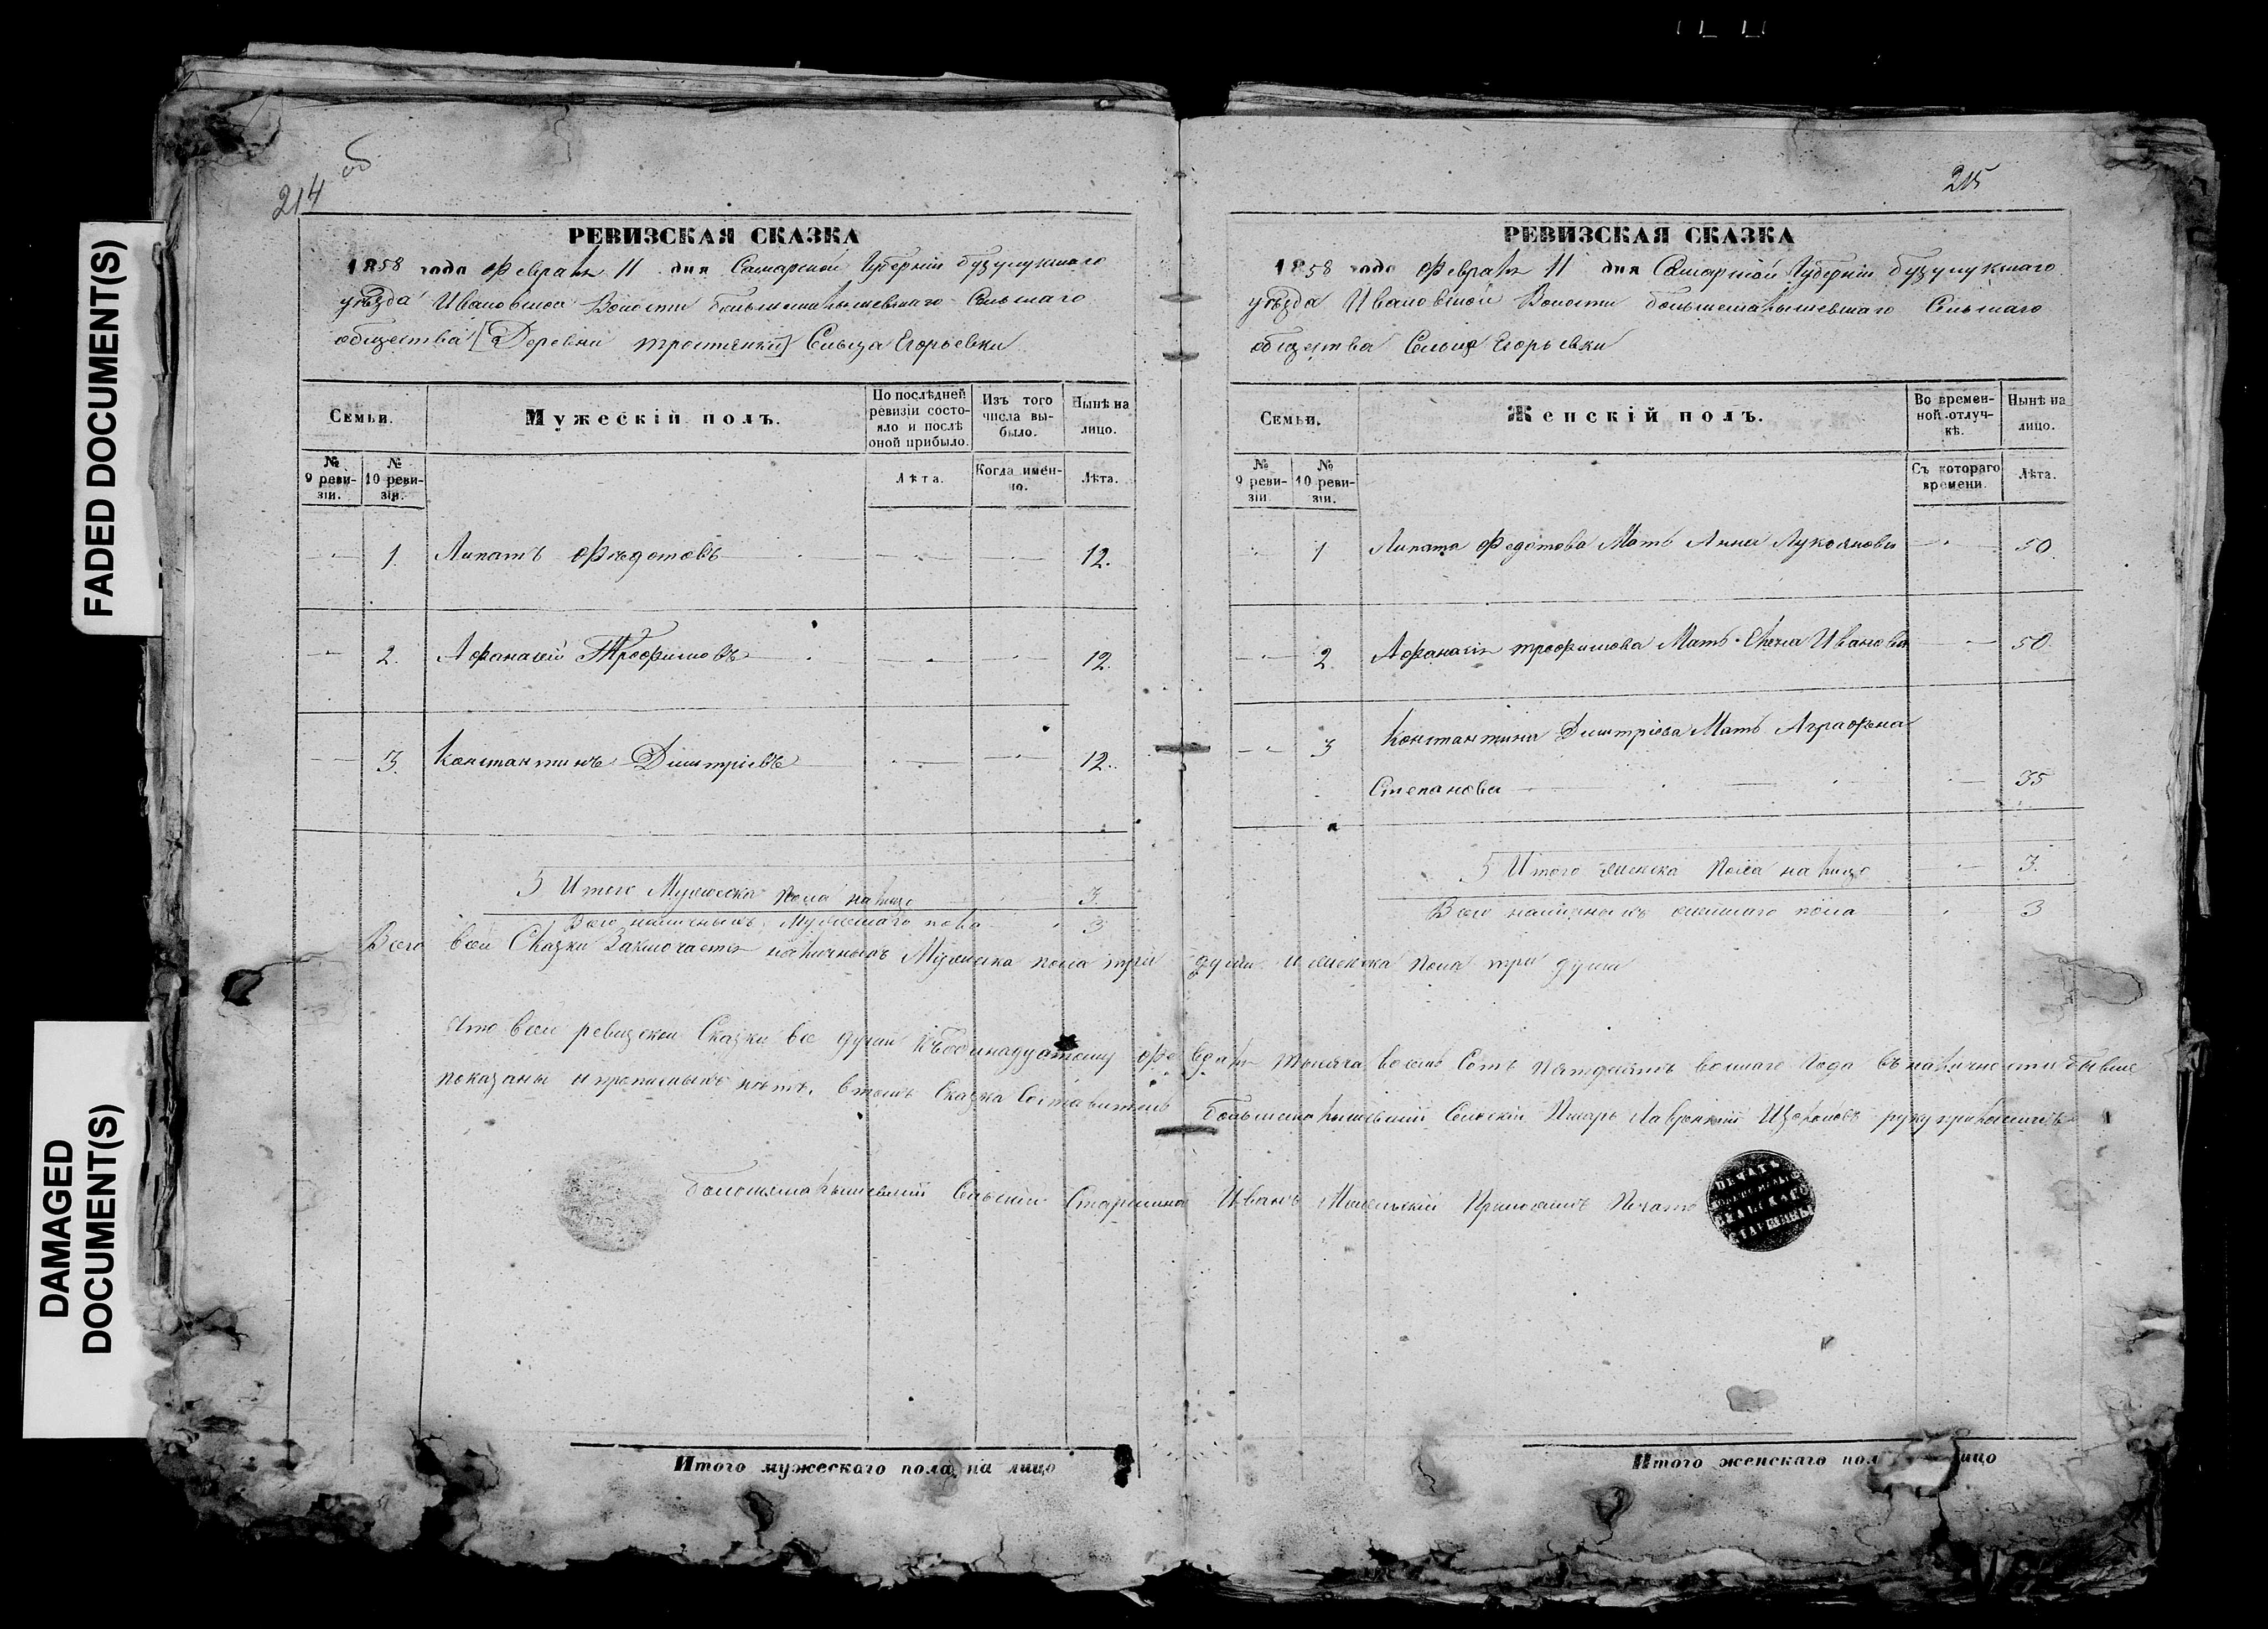 FADED DOCUMENT(S)
DAMAGED
DOCUMENT(S)
214 об
РЕВИЗСКАЯ СКАЗКА
1858 года Февраля 11 дня Самарской Губернии бузулукскаго
уѣзда Ивановской Волости Сельскаго
общества [Деревни тростянки] Сельца Егорьевки
Семьи.
Мужескій полъ.
По послѣдней
ревизіи состо-
яло и послѣ
оной прибыло.
Изъ того
числа вы-
было.
Нынѣ на
лицо.
№
9 реви-
зіи.
№
10 реви-
зіи.
Лѣта.
Когда имен-
но.
Лѣта.
1. Липатъ Федотовъ 12.
2. Афанасий Трофимовъ 12.
3. Константинъ Димитріевъ 12.
5 Итого Мужеска пола налицо 3.
Всего наличныхъ Мужескаго пола 3
215
РЕВИЗСКАЯ СКАЗКА
1858 года Февраля 11 дня Самарской Губерніи бузулукскаго
уѣзда Ивановской Волости Сельскаго
общества Сельца Егорьевки
Семьи.
Женскій полъ.
Во времен-
ной отлуч-
кѣ.
Нынѣ на
лицо.
№
9 реви-
зіи.
№
10 реви-
зіи.
Съ котораго
времени.
Лѣта.
1 Липата Федотова Мать Анна Лукоянова 50
2 Афанасія трофимова Мать Елена Иванова 50
3 Константина Димитріева Мать Аграфена
Степанова 35
5 Итого женска пола налицо 3.
Всего наличныхъ женскаго пола 3
Всего всей Сказки Заключается наличныхъ Мужеска пола три души и женска пола три души
Что всей ревизской Сказки все души къ одинадцатому февраля тысяча восемь Сотъ Пятдесятъ восмаго Года въ наличности бывшие
показаны и прописныхъ нѣтъ. втомъ Сказка Составитель Сельскій Писарь руку приложилъ
Сельский Старшина Иванъ Приложилъ Печать
ПЕЧАТЬ
СЕЛЬСКАГО
СТАРШИНЫ
Итого мужескаго пола на лицо
Итого женскаго пол лицо